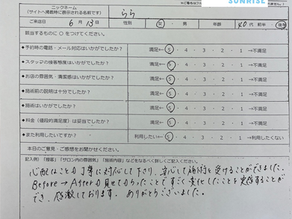 SUNRISE
ニックネーム
(サイトへ掲載時に表示される名前です) らら
ご来店日 6月13日 性別 女・男 年齢 40代 前半・後半
該当するものに○をつけて下さい。
・予約時の電話・メール対応はいかがでしたか? 満足→5・4・3・2・1→不満足
・スタッフの接客態度はいかがでしたか? 満足→5・4・3・2・1→不満足
・お店の雰囲気・清潔感はいかがでしたか? 満足→5・4・3・2・1→不満足
・施術前の説明は十分でしたか? 満足→5・4・3・2・1→不満足
・技術はいかがでしたか? 満足→5・4・3・2・1→不満足
・料金(価格的満足度)は妥当でしたか? 満足→5・4・3・2・1→不満足
・また利用したいですか? 利用したい→5・4・3・2・1→利用したくない
本日のご意見・ご感想をお聞かせください。
記入例)「接客」「サロン内の雰囲気」「施術内容」などをなるべく詳しくご記入ください。
心配なことも丁寧に対応して下さり、安心して施術を受けることができました。
Before→Afterの見せてもらったことですごく変化したことを実感することが
でき、感激しております。ありがとうございました。